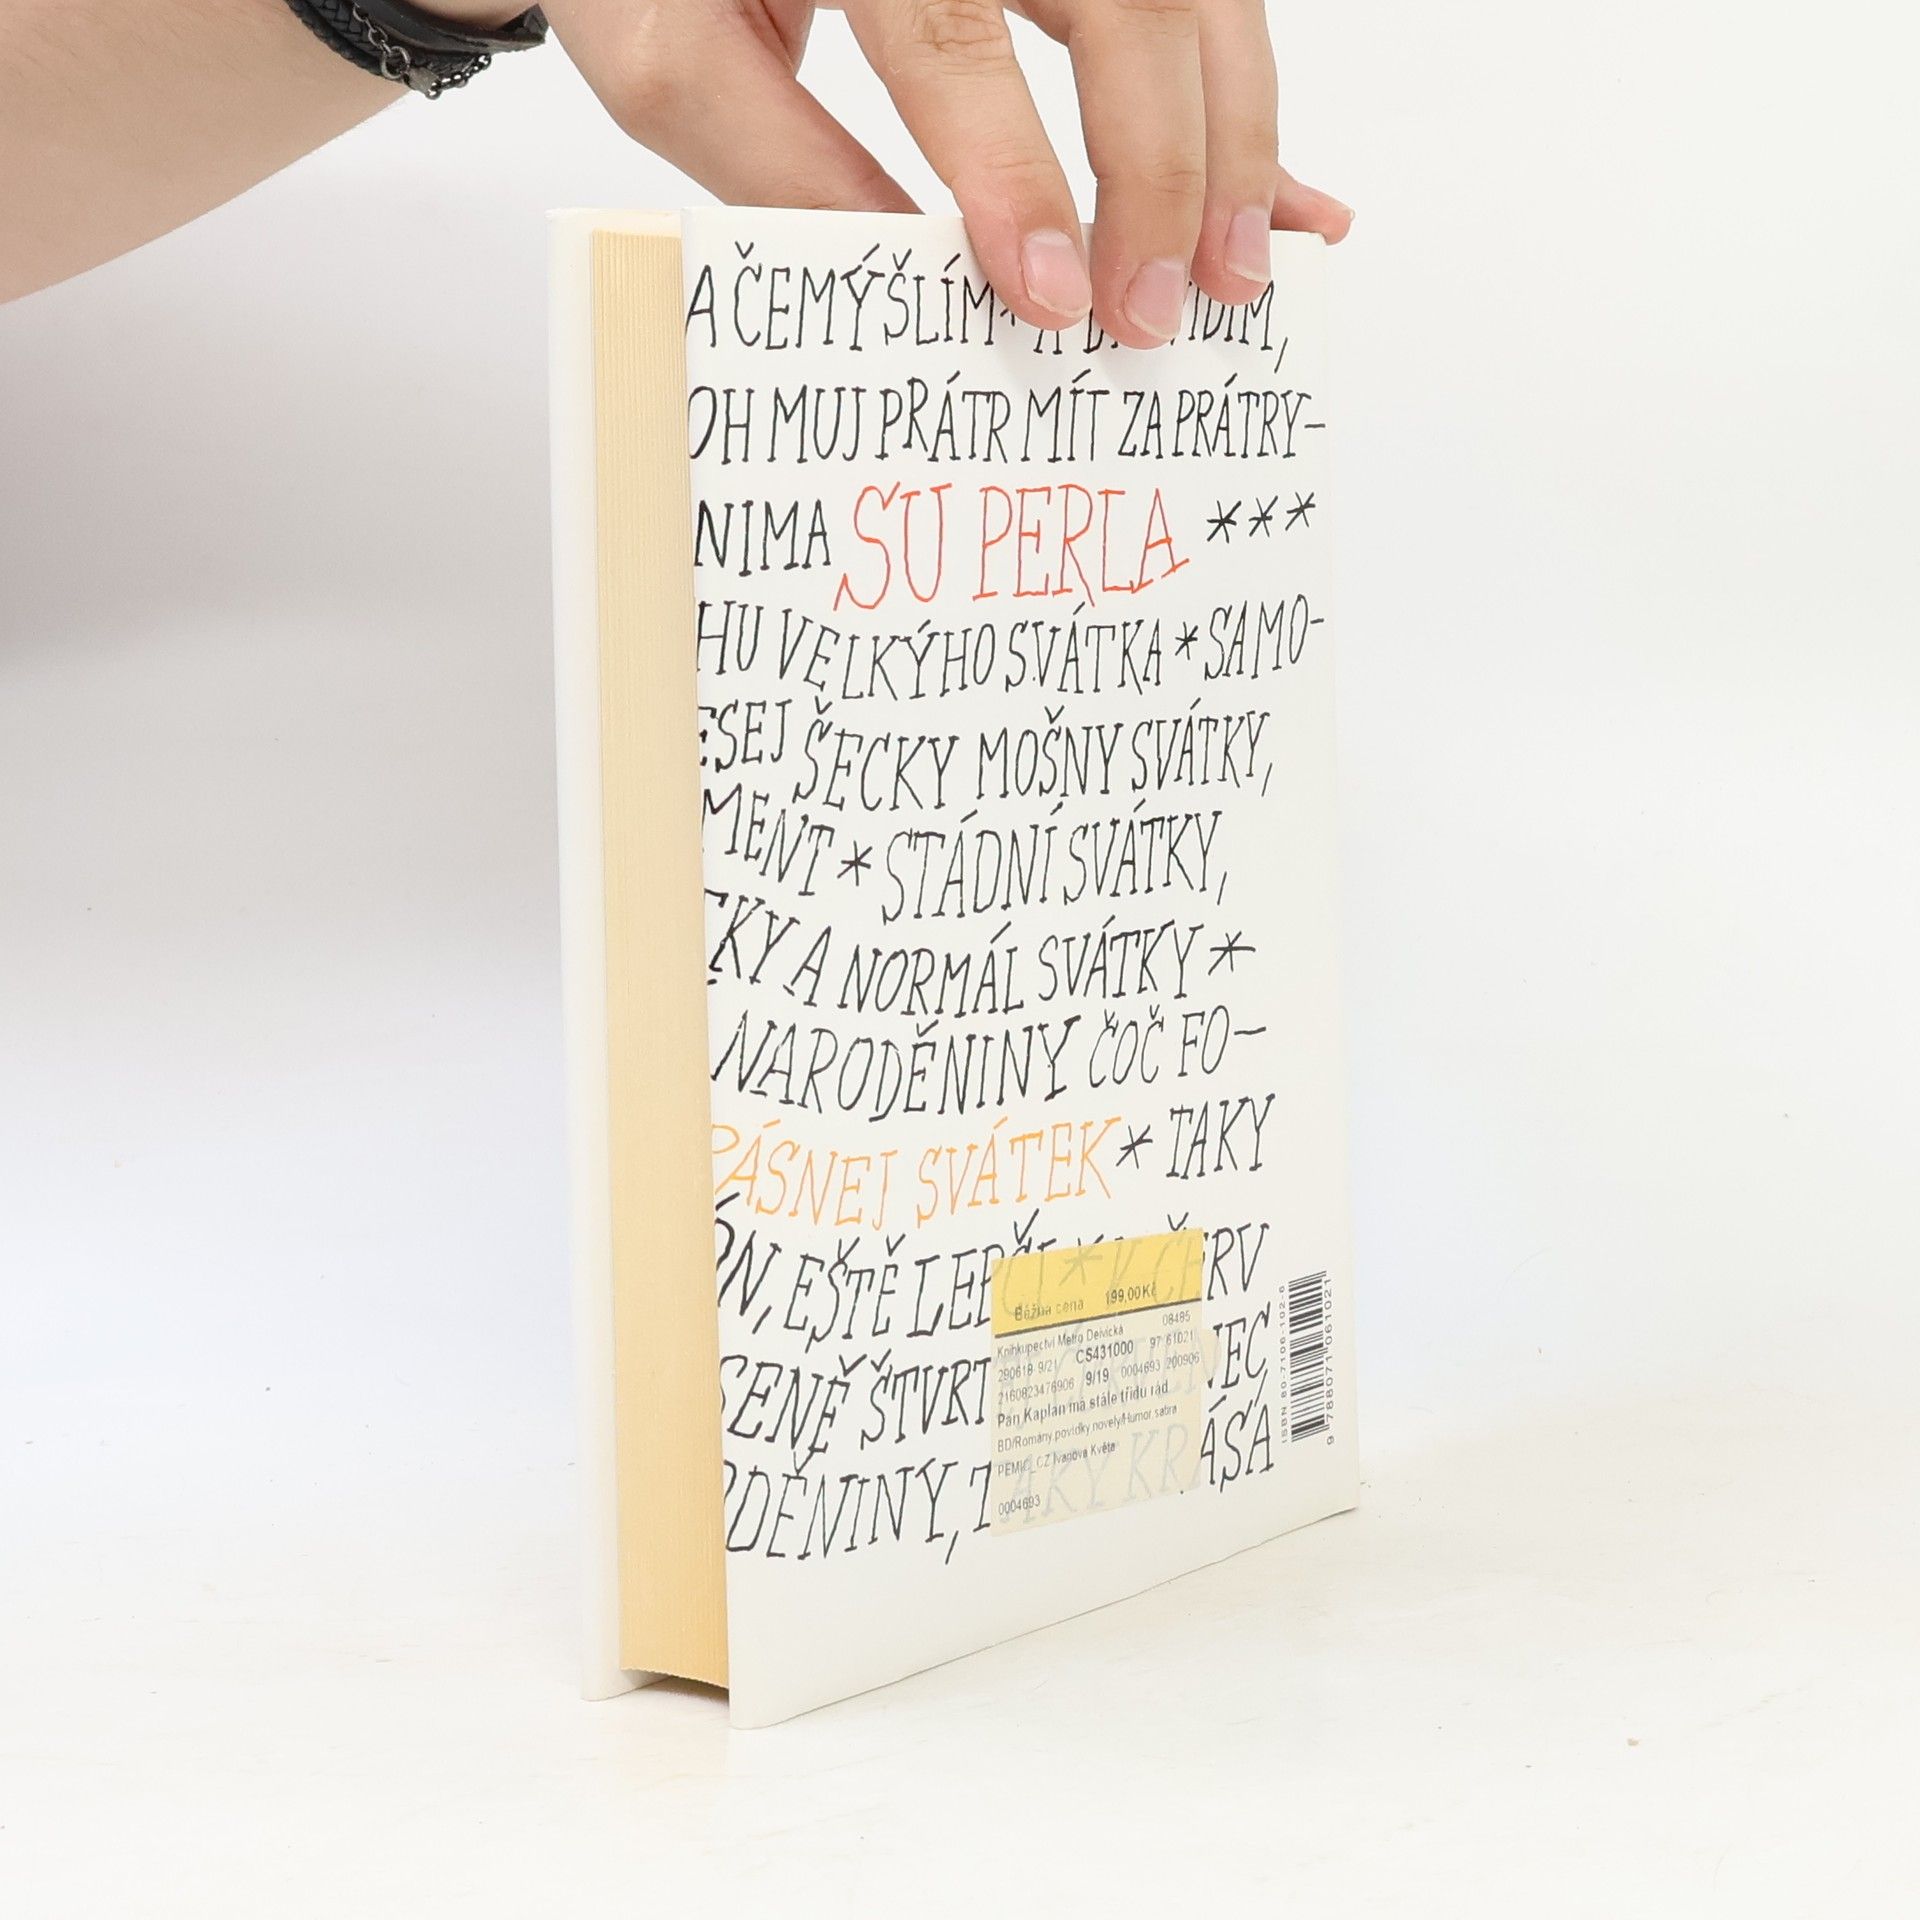 A ČEMÝŠLÍM*
OH MUJ PRÁTR MÍT ZA PRÁTRY-
NIMA SU PERLA ***
HU VELKÝHO SVÁTKA * SAMO-
ESEJ ŠECKY MOŠNY SVÁTKY,
MENT * STÁDNÍ SVÁTKY,
TKY A NORMÁL SVÁTKY *
NARODĚNINY ČOČ FO-
RÁSNEJ SVÁTEK * TAKY
N, EŠTĚ LEPČI * V ČERV
SENĚ ŠTVRT NEC,
DĚNINY, TAKY KRÁSÁ
Běžná cena 199,00Kč
Knihkupectví Metro Dejvická 08485
290618 9/21 CS431000 97 61021
2160823476906 9/19 0004693 200906
Pan Kaplan má stále třídu rád
BD/Romány,povídky,novely/Humor,satira
PEMIC_CZ Ivanova Květa
0004693
ISBN 80-7106-102-6
9 788071 061021